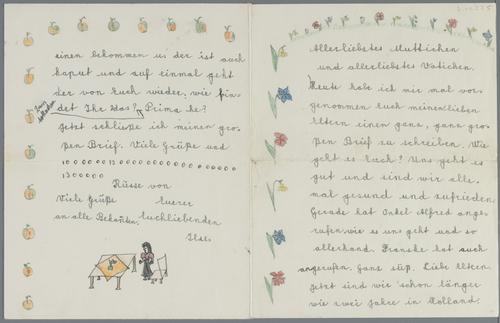 Allerliebstes Muttichen
und allerliebstes Vatichen.
Heute habe ich mir mal vor-
genommen Euch meinen lieben
Eltern einen ganz, ganz gro-
ßen Brief zu schreiben. Wie
geht es Euch? Uns geht es
gut und sind wir alle
mal gesund und zufrieden
Gerade hat Onkel Alfred ange-
rufen wie es uns geht und so
allerhand. Franske hat auch
angerufen. Ganz süß. Liebe Eltern
jetzt sind wir schon länger
wie zwei Jahre in Holland.
einen bekommen u. der ist auch
kaput und auf einmal geht
der von Euch wieder, wie fin-
det Ihr das? Prima he?
Jetzt schließe ich meinen gro-
ßen Brief. Viele Grüße und
Küsse von
Viele Grüße Eurer
an alle Bekannten. Euchliebenden
Ilse.